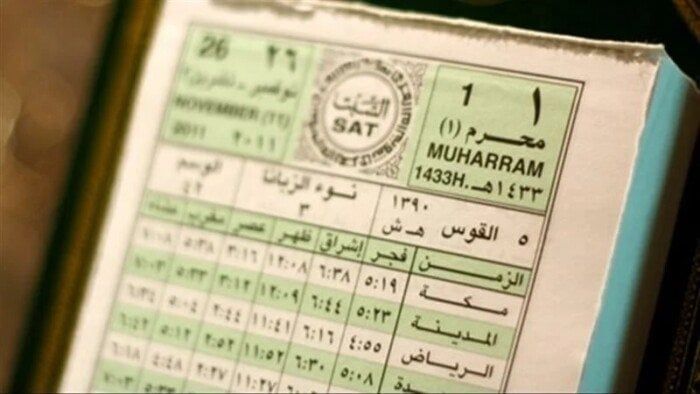 ١ 1 السبت ٢٦ 26
محرم (١) SAT نوفمبر - تشرين٢
MUHARRAM NOVEMBER (11)
1433H. هـ ١٤٣٣ ٢٠١١ 2011
٥ القوس ١٣٩٠ هـ ش نوء الزبانا ٣ الوسم ٤٢
الزمن فجر إشراق ظهر عصر مغرب عشاء
مكة ٥:١٩ ٦:٣٨ ١٢:٠٨ ٣:١٦ ٥:٣٨ ٧:٠٨
المدينة ٥:٢٣ ٦:٤٤ ١٢:٠٩ ٣:١٢ ٥:٣٣ ٧:٠٣
الرياض ٤:٥٥ ٦:١٦ ١١:٤١ ٢:٤٤ ٥:٠٤ ٦:٣٤
٥:٠٨ ٦:٣٠ ١١:٥٢ ٢:٥٢ ٥:١٢
١١:٢٧ ٢:٢٧ ٤:٤٨ ٦:١٨
٧:٠٣